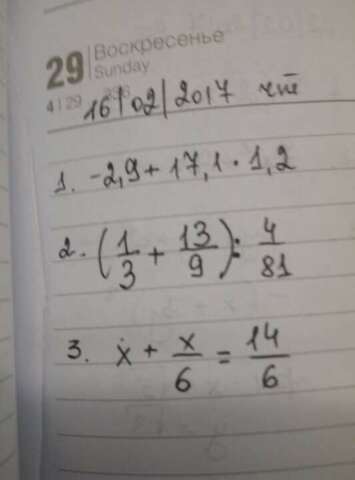 29 Воскресенье
Sunday
4 | 29
16/02/2017 чт
1. -2,9 + 17,1 · 1,2
2. (1/3 + 13/9) : 4/81
3. x + x/6 = 14/6